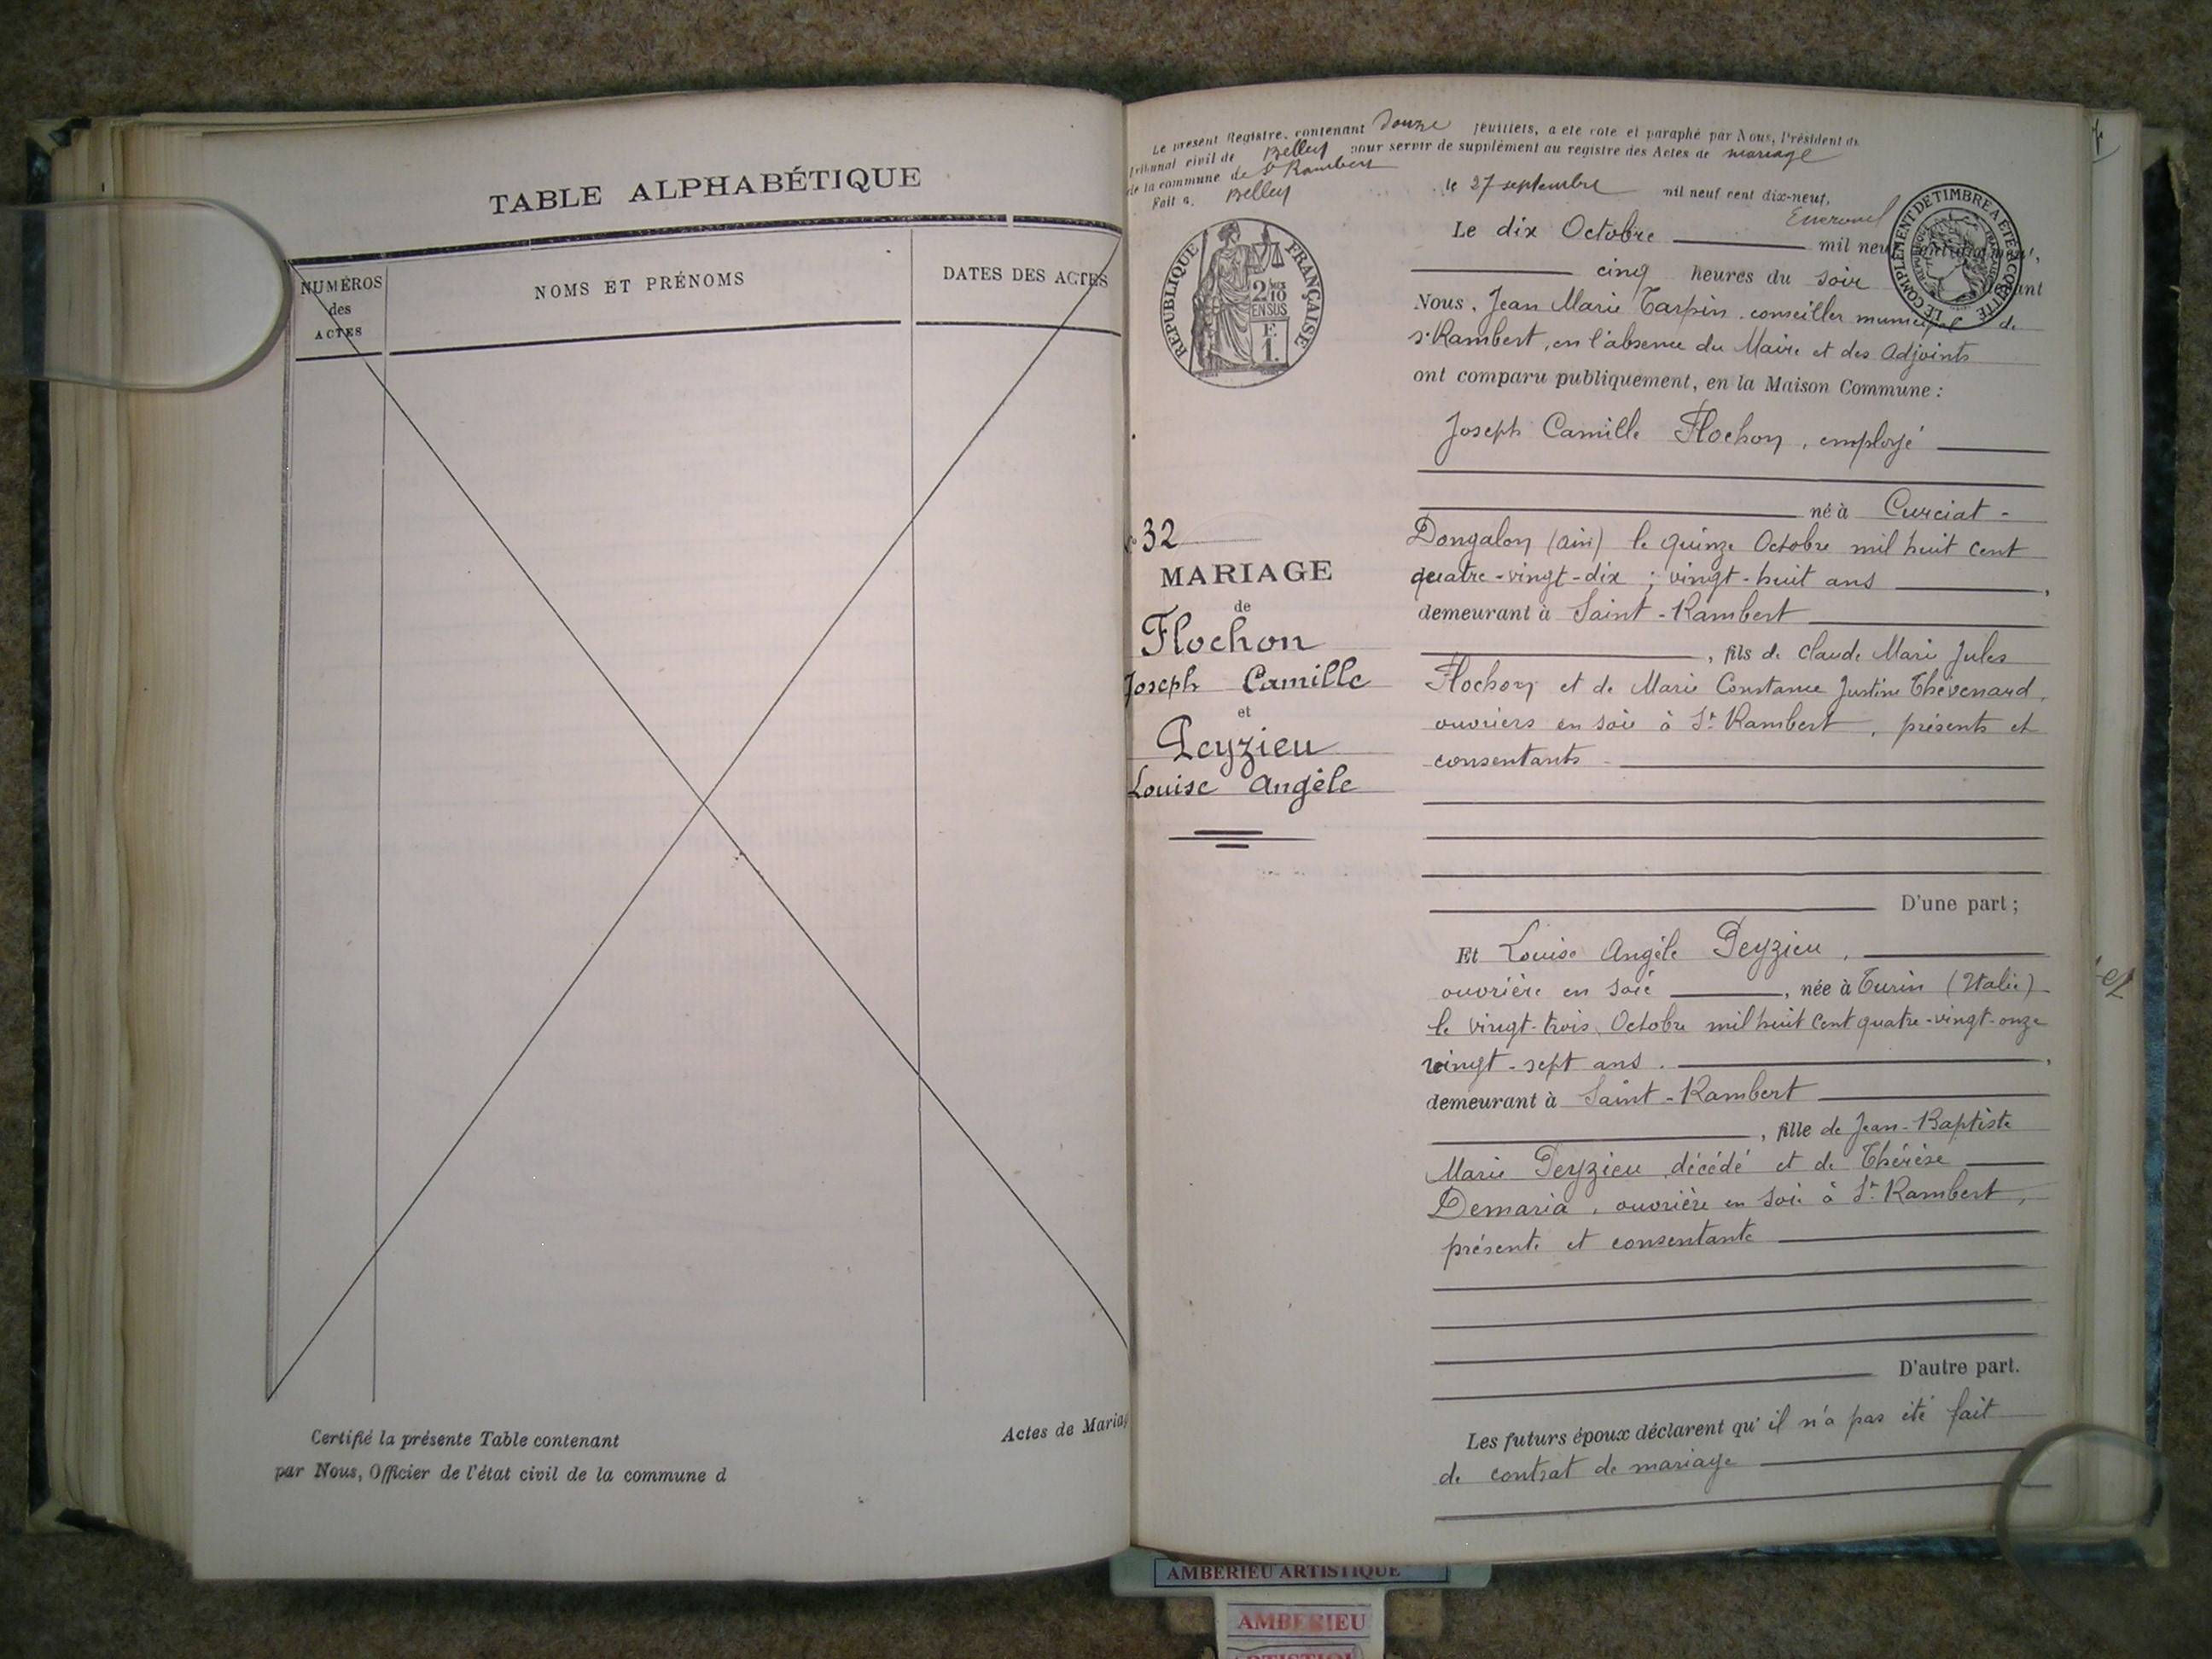 TABLE ALPHABÉTIQUE
NUMÉROS
des
ACTES
NOMS ET PRÉNOMS
DATES DES ACTES
Certifié la présente Table contenant
par Nous, Officier de l'état civil de la commune d
Actes de Mariag
Le présent Registre, contenant Douze feuillets, a été coté et paraphé par Nous, Président du
Tribunal civil de Belley pour servir de supplément au registre des Actes de mariage
de la commune de St Rambert
Fait à Belley le 27 septembre mil neuf cent dix-neuf,
RÉPUBLIQUE FRANÇAISE
2/10
EN SUS
F
1.
LE COMPLÉMENT DE TIMBRE A ÉTÉ ACQUITTÉ
Le dix Octobre mil neuf
cinq heures du soir
Nous, Jean Marie Tarpin, conseiller municipal de
St Rambert, en l'absence du Maire et des Adjoints
ont comparu publiquement, en la Maison Commune :
Joseph Camille Flochon, employé
né à Curciat-
Dongalon (Ain) le quinze Octobre mil huit cent
quatre-vingt-dix ; vingt-huit ans,
demeurant à Saint-Rambert
, fils de Claude Marie Jules
Flochon et de Marie Constance Justine Thévenard,
ouvriers en soie à St Rambert, présents et
consentants
D'une part ;
N° 32
MARIAGE
de
Flochon
Joseph Camille
et
Peyzieu
Louise Angèle
Et Louise Angèle Peyzieu,
ouvrière en soie, née à Turin (Italie)
le vingt-trois Octobre mil huit cent quatre-vingt-onze
vingt-sept ans.,
demeurant à Saint-Rambert
, fille de Jean-Baptiste
Marie Peyzieu, décédé et de Thérèse
Demaria, ouvrière en soie à St Rambert,
présente et consentante
D'autre part.
Les futurs époux déclarent qu'il n'a pas été fait
de contrat de mariage
AMBERIEU ARTISTIQUE
AMBERIEU